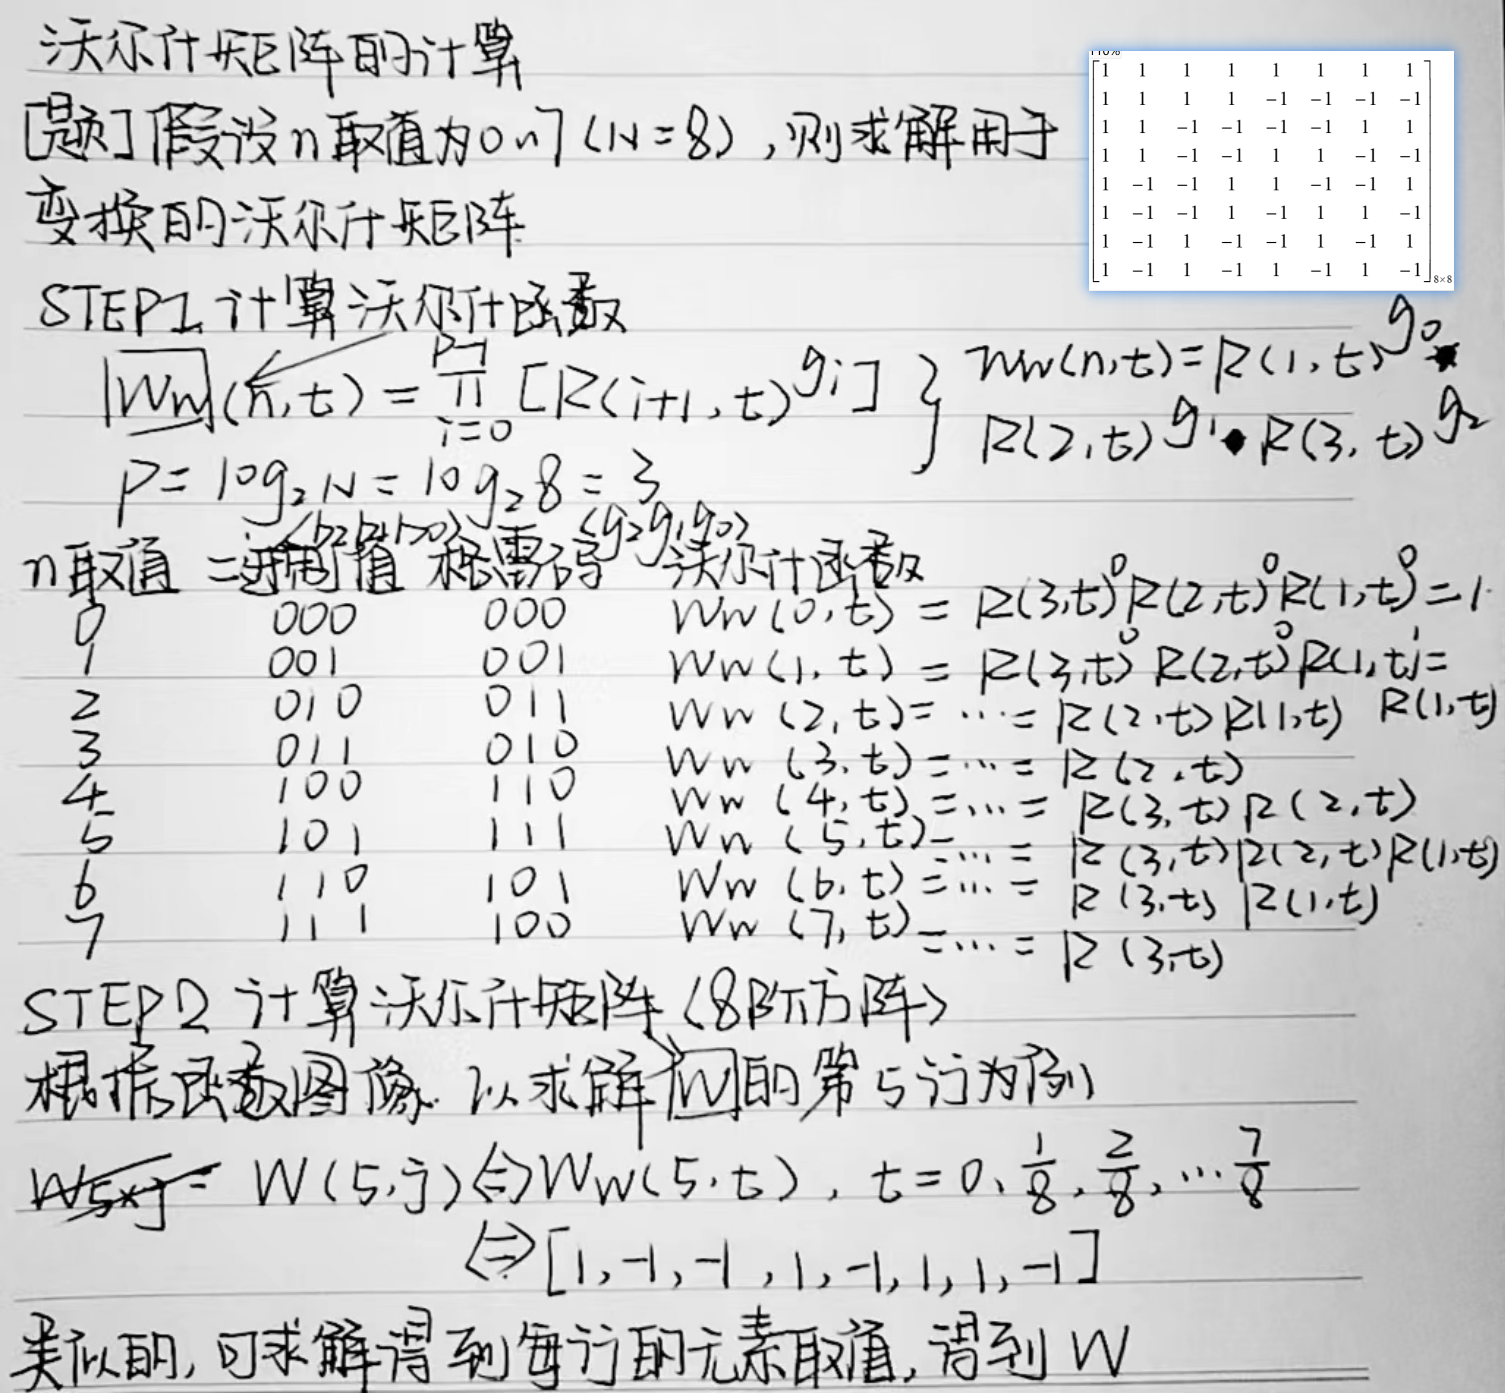 沃尔什矩阵的计算
[题]假设n取值为0~7(N=8),则求解用于
变换的沃尔什矩阵
110%
1 1 1 1 1 1 1 1
1 1 1 1 -1 -1 -1 -1
1 1 -1 -1 -1 -1 1 1
1 1 -1 -1 1 1 -1 -1
1 -1 -1 1 1 -1 -1 1
1 -1 -1 1 -1 1 1 -1
1 -1 1 -1 -1 1 -1 1
1 -1 1 -1 1 -1 1 -1
8×8
STEP1 计算沃尔什函数
Ww(n,t) = ∏_{i=0}^{P-1} [R(i+1,t)^{gi}] } Ww(n,t)=R(1,t)^{g0}·
R(2,t)^{g1}·R(3,t)^{g2}
P=log₂N=log₂8=3
n取值 二进制值<b2b1b0> 格雷码<g2g1g0> 沃尔什函数
0 000 000 Ww(0,t) = R(3,t)⁰R(2,t)⁰R(1,t)⁰=1
1 001 001 Ww(1,t) = R(3,t)⁰R(2,t)⁰R(1,t)¹=R(1,t)
2 010 011 Ww(2,t)=…=R(2,t)R(1,t)
3 011 010 Ww(3,t)=…=R(2,t)
4 100 110 Ww(4,t)=…=R(3,t)R(2,t)
5 101 111 Ww(5,t)=…=R(3,t)R(2,t)R(1,t)
6 110 101 Ww(6,t)=…=R(3,t)R(1,t)
7 111 100 Ww(7,t)=…=R(3,t)
STEP2 计算沃尔什矩阵(8阶方阵)
根据函数图像.以求解W的第5行为例
W5×j= W(5,j)⇔Ww(5,t),t=0,1/8,2/8,…7/8
⇔[1,-1,-1,1,-1,1,1,-1]
类似的,可求解得到每行的元素取值,得到W